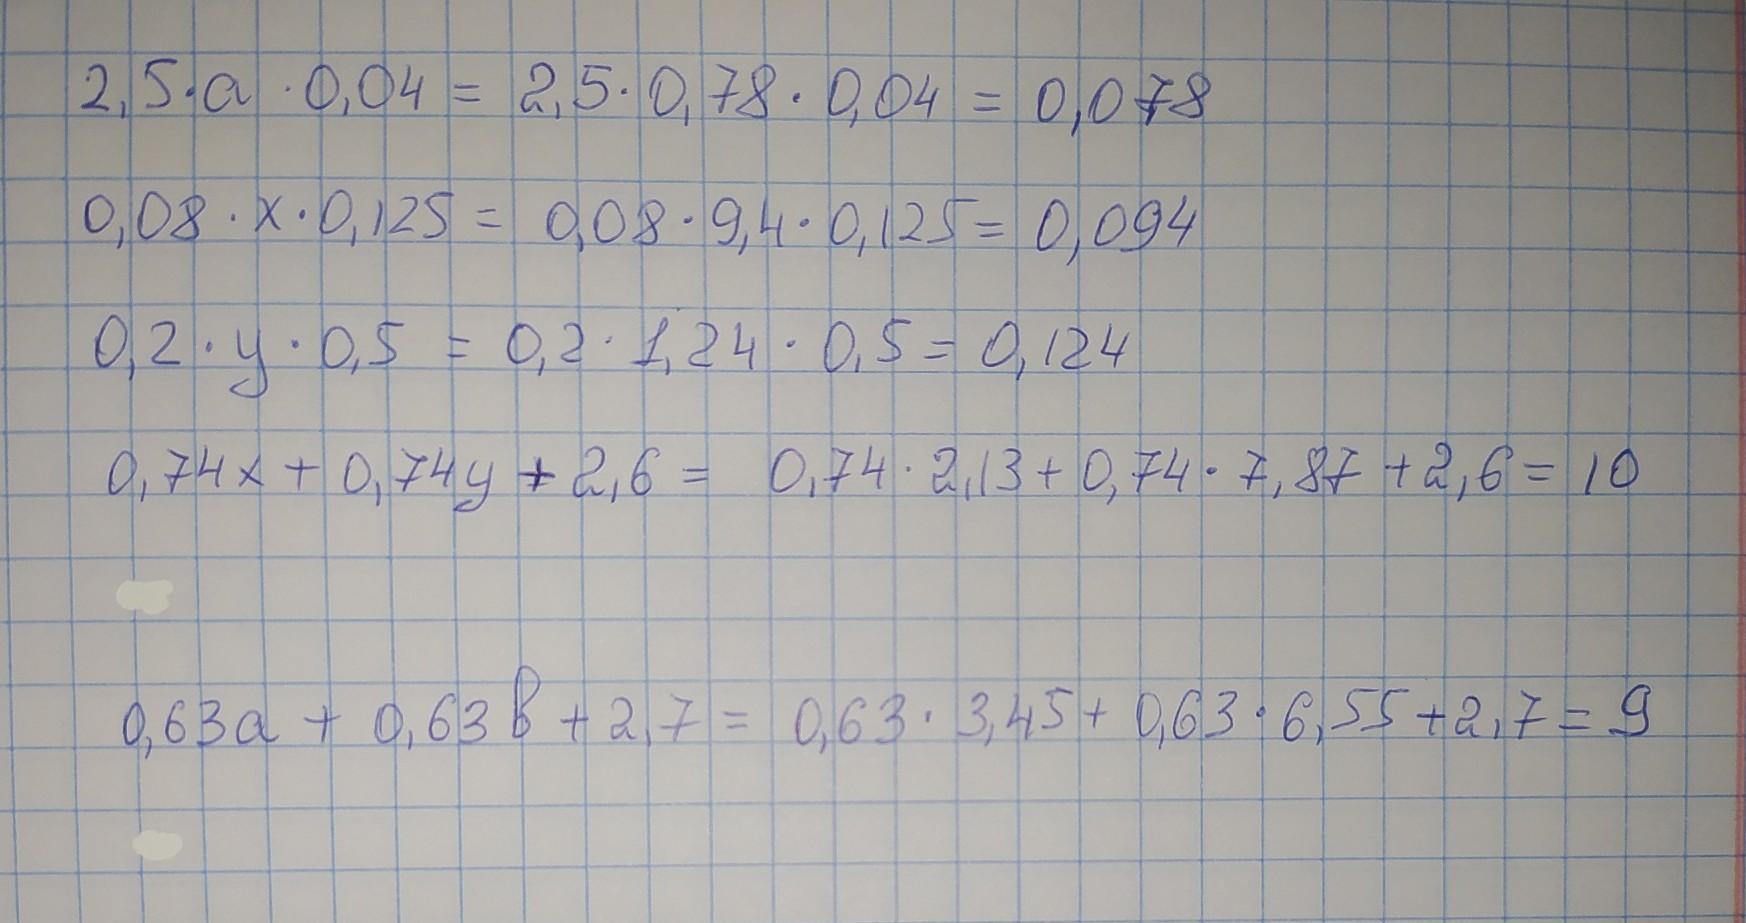 2,5·a·0,04 = 2,5·0,78·0,04 = 0,078
0,08·x·0,125 = 0,08·9,4·0,125 = 0,094
0,2·y·0,5 = 0,2·1,24·0,5 = 0,124
0,74x + 0,74y + 2,6 = 0,74·2,13 + 0,74·7,87 + 2,6 = 10
0,63a + 0,63b + 2,7 = 0,63·3,45 + 0,63·6,55 + 2,7 = 9